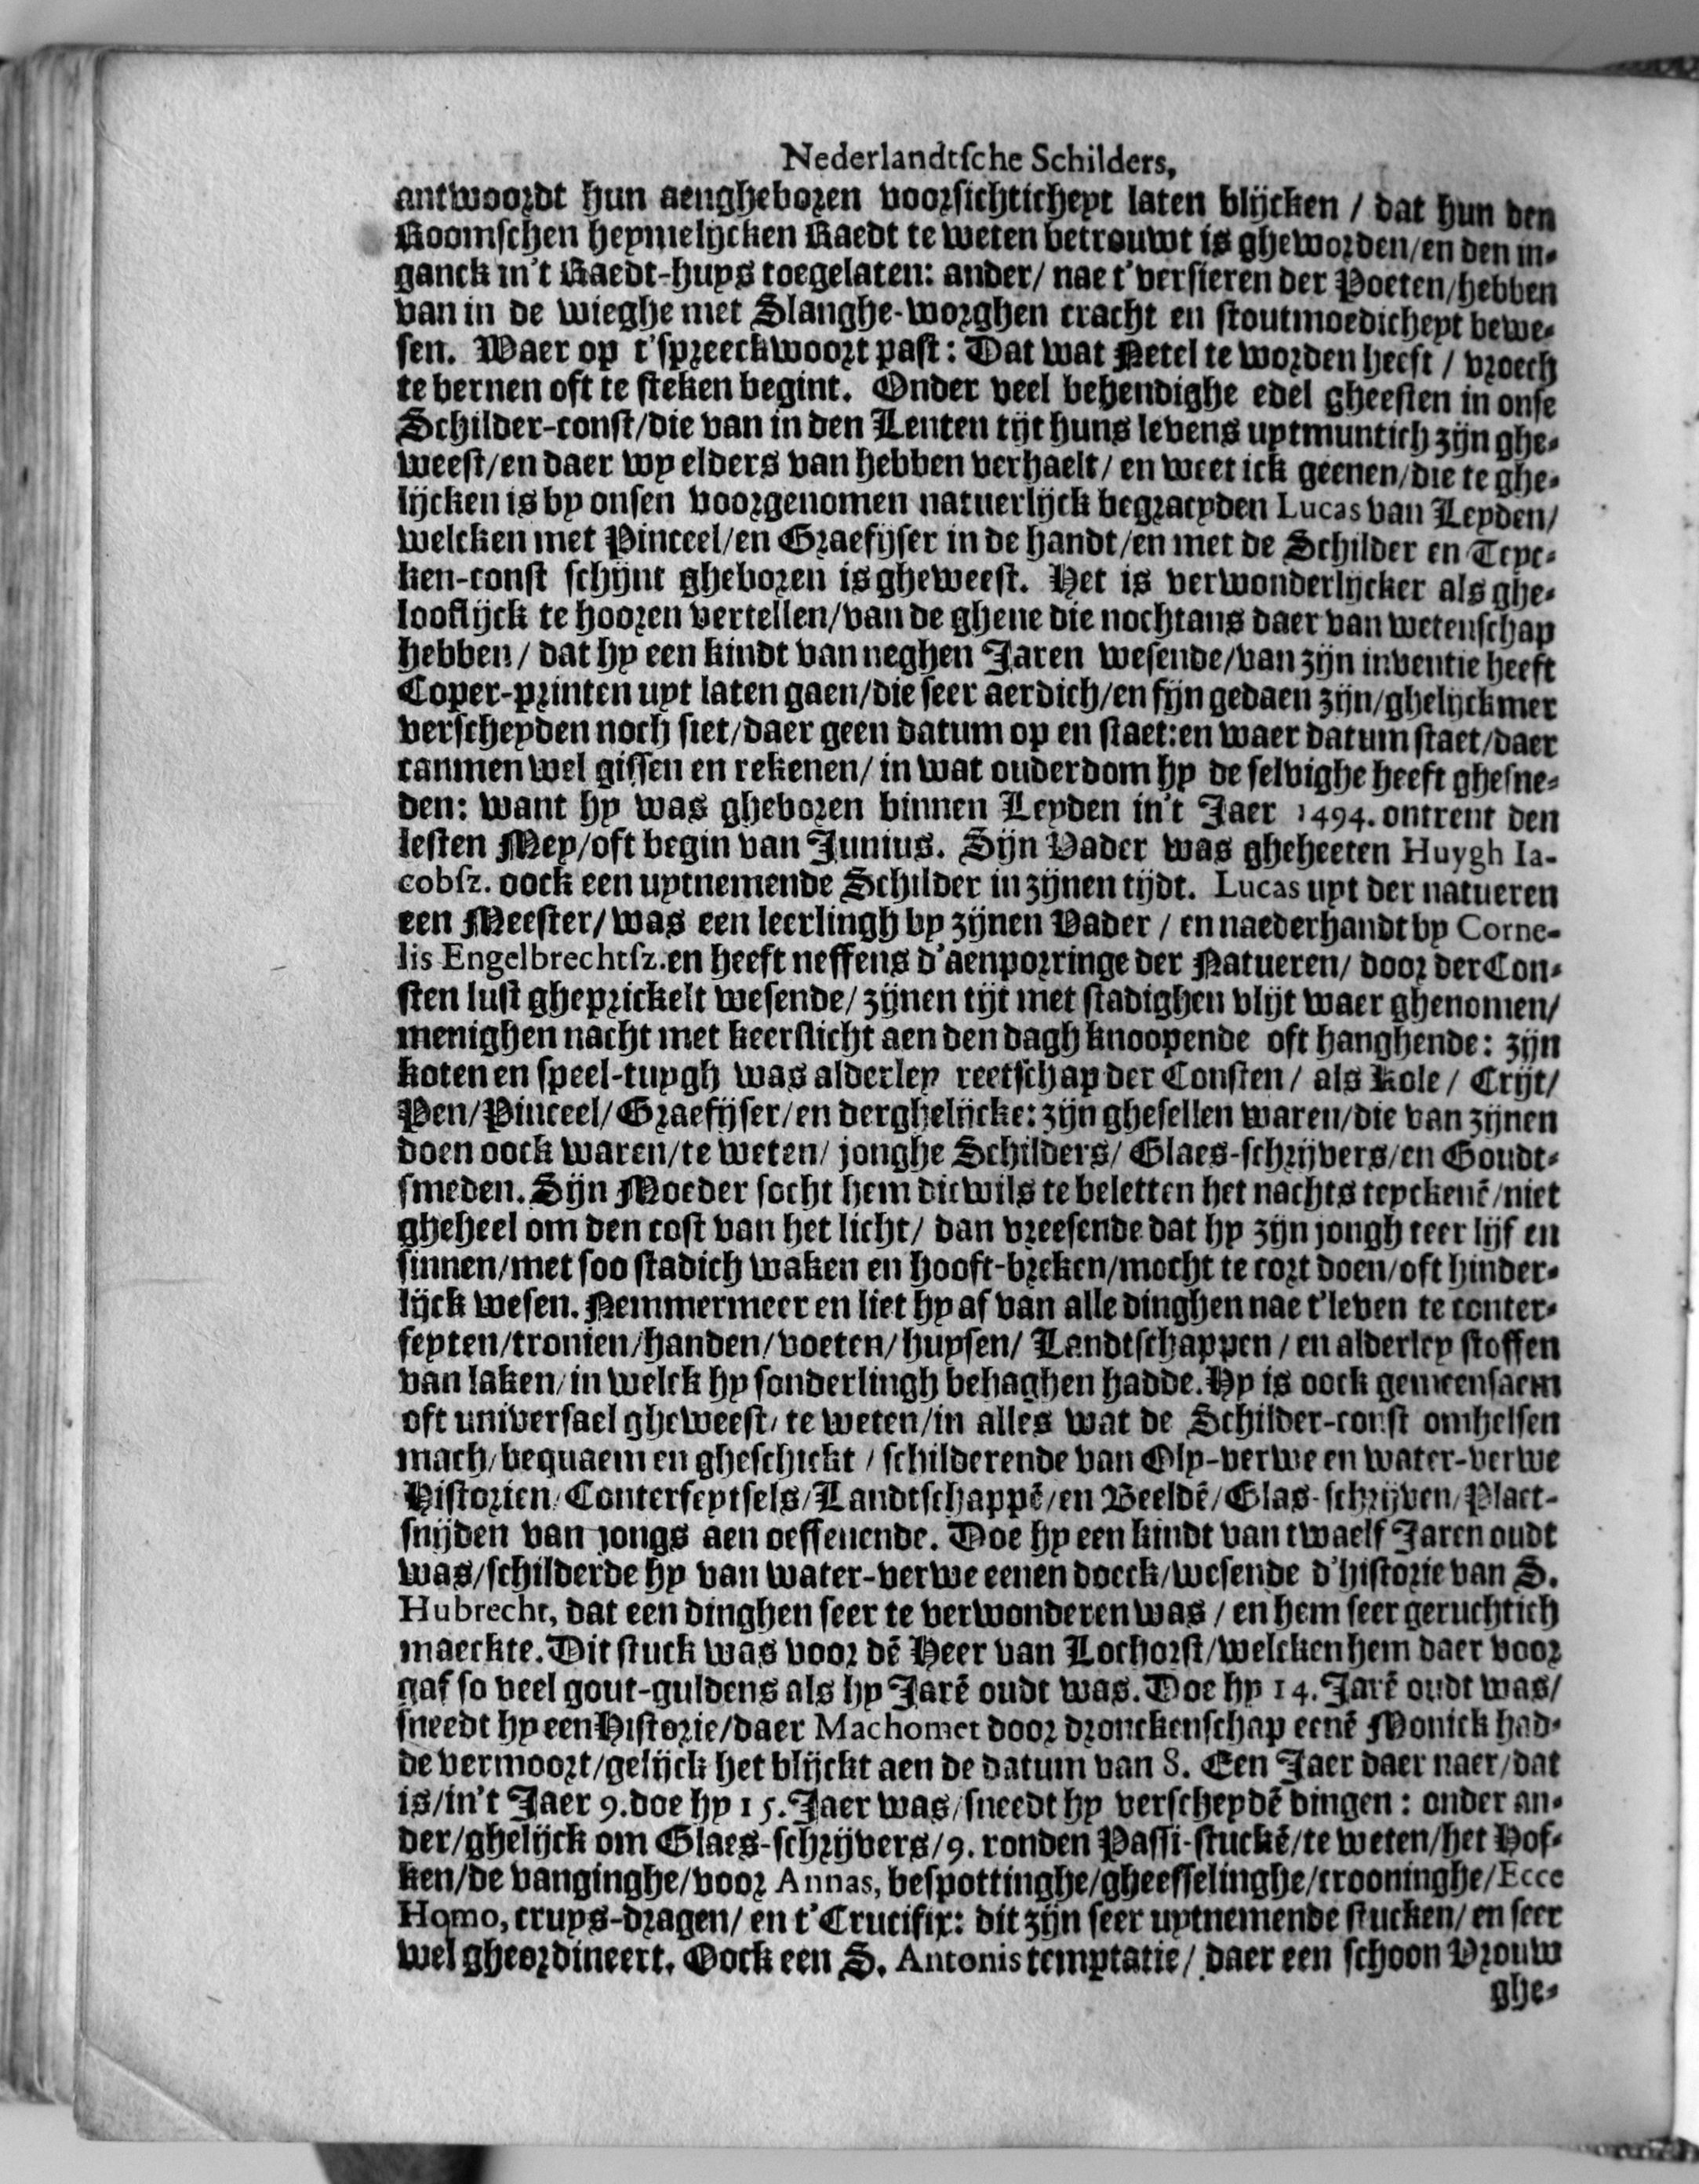 Nederlandtſche Schilders,
antwoordt hun aengheboren voorsichticheyt laten blijcken / dat hun den
Roomschen heymelijcken Raedt te weten betrouwt is gheworden/en den in-
ganck in't Raedt-huys toegelaten: ander/ nae t'versieren der Poeten/hebben
van in de wieghe met Slanghe-worghen cracht en stoutmoedicheyt bewe-
sen. Waer op t'spreeckwoort past: Dat wat Netel te worden heeft / vroech
te bernen oft te steken begint. Onder veel behendighe edel gheesten in onse
Schilder-const/die van in den Lenten tijt huns levens uytmuntich zijn ghe-
weest/en daer wy elders van hebben verhaelt/ en weet ick geenen/die te ghe-
lijcken is by onsen voorgenomen natuerlijck begraeyden Lucas van Leyden/
welcken met Pinceel/en Graefijser in de handt/en met de Schilder en Teyc-
ken-const schijnt gheboren is gheweest. Het is verwonderlijcker als ghe-
looflijck te hooren vertellen/van de ghene die nochtans daer van wetenschap
hebben/ dat hy een kindt van neghen Jaren wesende/van zijn inventie heeft
Coper-printen uyt laten gaen/die seer aerdich/en fijn gedaen zijn/ghelijckmer
verscheyden noch siet/daer geen datum op en staet:en waer datum staet/daer
canmen wel gissen en rekenen/ in wat ouderdom hy de selvighe heeft ghesne-
den: want hy was gheboren binnen Leyden in't Jaer 1494. ontrent den
lesten Mey/oft begin van Junius. Sijn Vader was gheheeten Huygh Ia-
cobſz. oock een uytnemende Schilder in zijnen tijdt. Lucas uyt der natueren
een Meester/ was een leerlingh by zijnen Vader / en naederhandt by Corne-
lis Engelbrechtſz.en heeft neffens d'aenporringe der Natueren/ door der Con-
sten lust gheprickelt wesende/ zijnen tijt met stadighen vlijt waer ghenomen/
menighen nacht met keerslicht aen den dagh knoopende oft hanghende: zijn
koten en speel-tuygh was alderley reetschap der Consten/ als Kole/ Crijt/
Pen/Pinceel/Graefijser/en derghelijcke: zijn ghesellen waren/die van zijnen
doen oock waren/te weten/ jonghe Schilders/ Glaes-schrijvers/en Goudt-
smeden. Sijn Moeder socht hem dicwils te beletten het nachts teyckenē/niet
gheheel om den cost van het licht/ dan vreesende dat hy zijn jongh teer lijf en
sinnen/met soo stadich waken en hooft-breken/mocht te cort doen/oft hinder-
lijck wesen. Nemmermeer en liet hy af van alle dinghen nae t'leven te conter-
feyten/tronien/handen/voeten/huysen/ Landtschappen / en alderley stoffen
van laken/in welck hy sonderlingh behaghen hadde. Hy is oock gemeensaem
oft universael gheweest/ te weten/in alles wat de Schilder-const omhelsen
mach/bequaem en gheschickt / schilderende van Oly-verwe en water-verwe
Historien/Conterfeytsels/Landtschappē/en Beeldē/Glas-schrijven/Plaet-
snijden van jongs aen oeffenende. Doe hy een kindt van twaelf Jaren oudt
was/schilderde hy van water-verwe eenen doeck/wesende d'historie van S.
Hubrecht, dat een dinghen seer te verwonderen was / en hem seer geruchtich
maeckte. Dit stuck was voor dē Heer van Lochorst/welcken hem daer voor
gaf so veel gout-guldens als hy Jarē oudt was. Doe hy 14. Jarē oudt was/
sneedt hy een Historie/daer Machomet door dronckenschap eenē Monick had-
de vermoort/gelijck het blijckt aen de datum van 8. Een Jaer daer naer/dat
is/in't Jaer 9. doe hy 15. Jaer was/sneedt hy verscheydē dingen: onder an-
der/ghelijck om Glaes-schrijvers/9. ronden Passi-stuckē/te weten/het Hof-
ken/de vanginghe/voor Annas, bespottinghe/gheesselinghe/crooninghe/Ecce
Homo, cruys-dragen/ en t'Crucifix: dit zijn seer uytnemende stucken/ en seer
wel gheordineert. Oock een S. Antonis temptatie/ daer een schoon Vrouw
ghe-